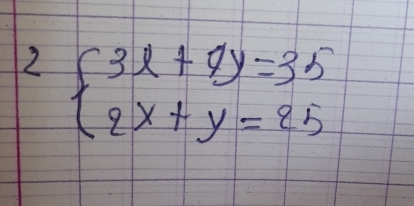 2 { 3x + 4y = 35
2x + y = 25